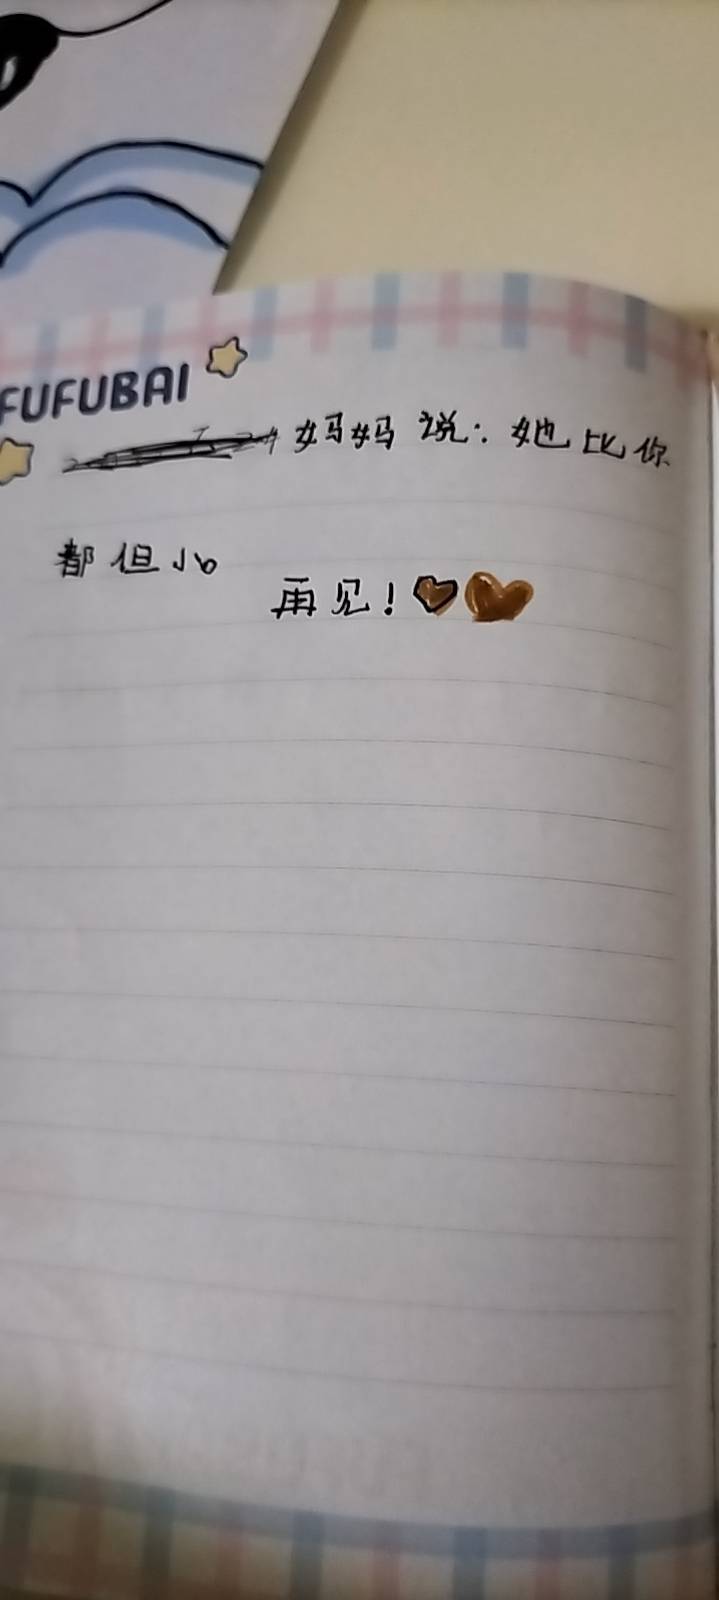 FUFUBAI
妈妈说：她比你
都但小。
再见！